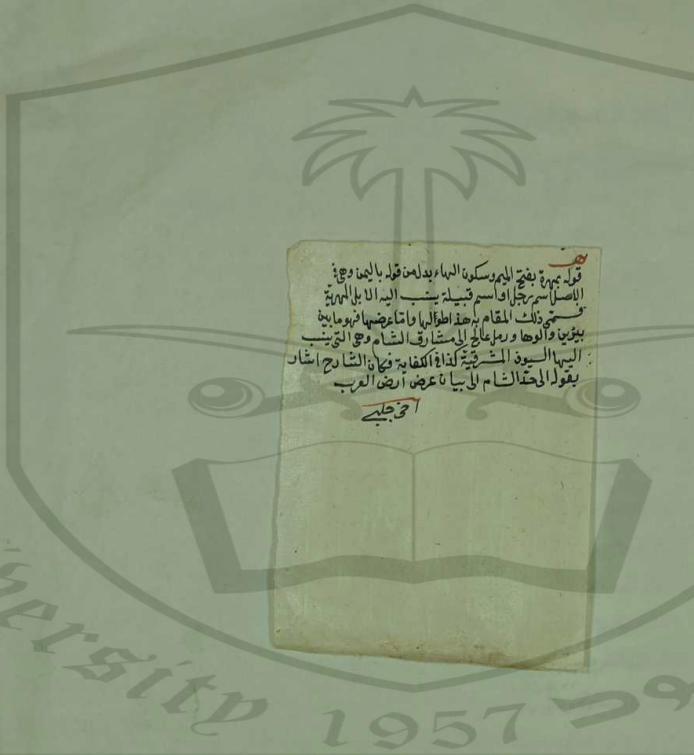 قوله بمهرة بفتح الميم وسكون الهاء بدل من قوله باليمن وهى فى
الاصل اسم رجل او اسم قبيلة ينسب اليه الابل المهرية
فسمى ذلك المقام به هذا طوالها واما عرضها فهو ما بين
يبرين والوها ورمل عالج الى مشارف الشام وهى التى ينسب
اليها السيوف المشرفية كذا فى الكفاية فكان الشارح اشار
بقوله الى حد الشام الى بيان عرض ارض العرب
اخى جلبى
versity 1957